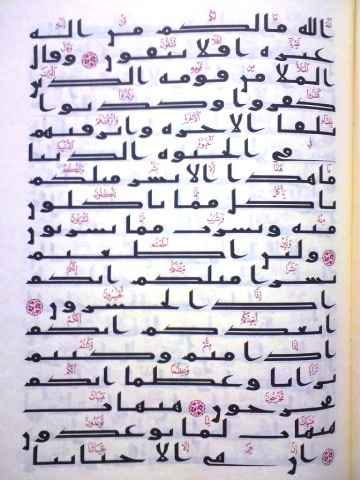 الله مالكم من اله
غيره افلا تتقون وقال
الملا من قومه الذين
كفروا وكذبوا
بلقا الاخره واترفنهم
في الحيوه الدنيا
ماهذا الا بشر مثلكم
ياكل مما تاكلون
منه ويشرب مما تشربون
ولئن اطعتم
بشرا مثلكم انكم
اذا لخسرون
ايعدكم انكم
اذا متم وكنتم
ترابا وعظما انكم
مخرجون هيهات
هيهات لما توعدون
ان هي الا حياتنا